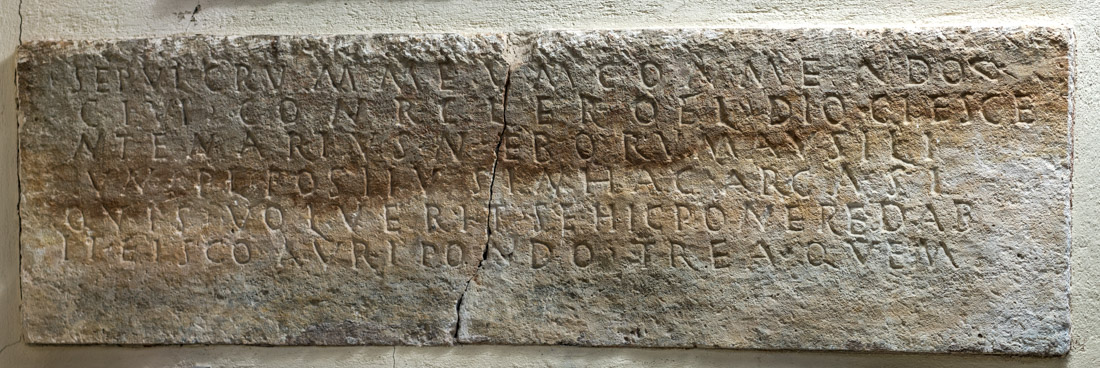 SEPVLCRV M AMEVM COMMENDO
CIVI CONR CLERO FL DIOCLES CE
NTENARIVS N EBORVM AVSILI
POSITVS IN HAC ARCA SI
QVIS VOLVERIT SE HIC PONERE DAB
IT FISCO AVRI PONDO TREA QVEM